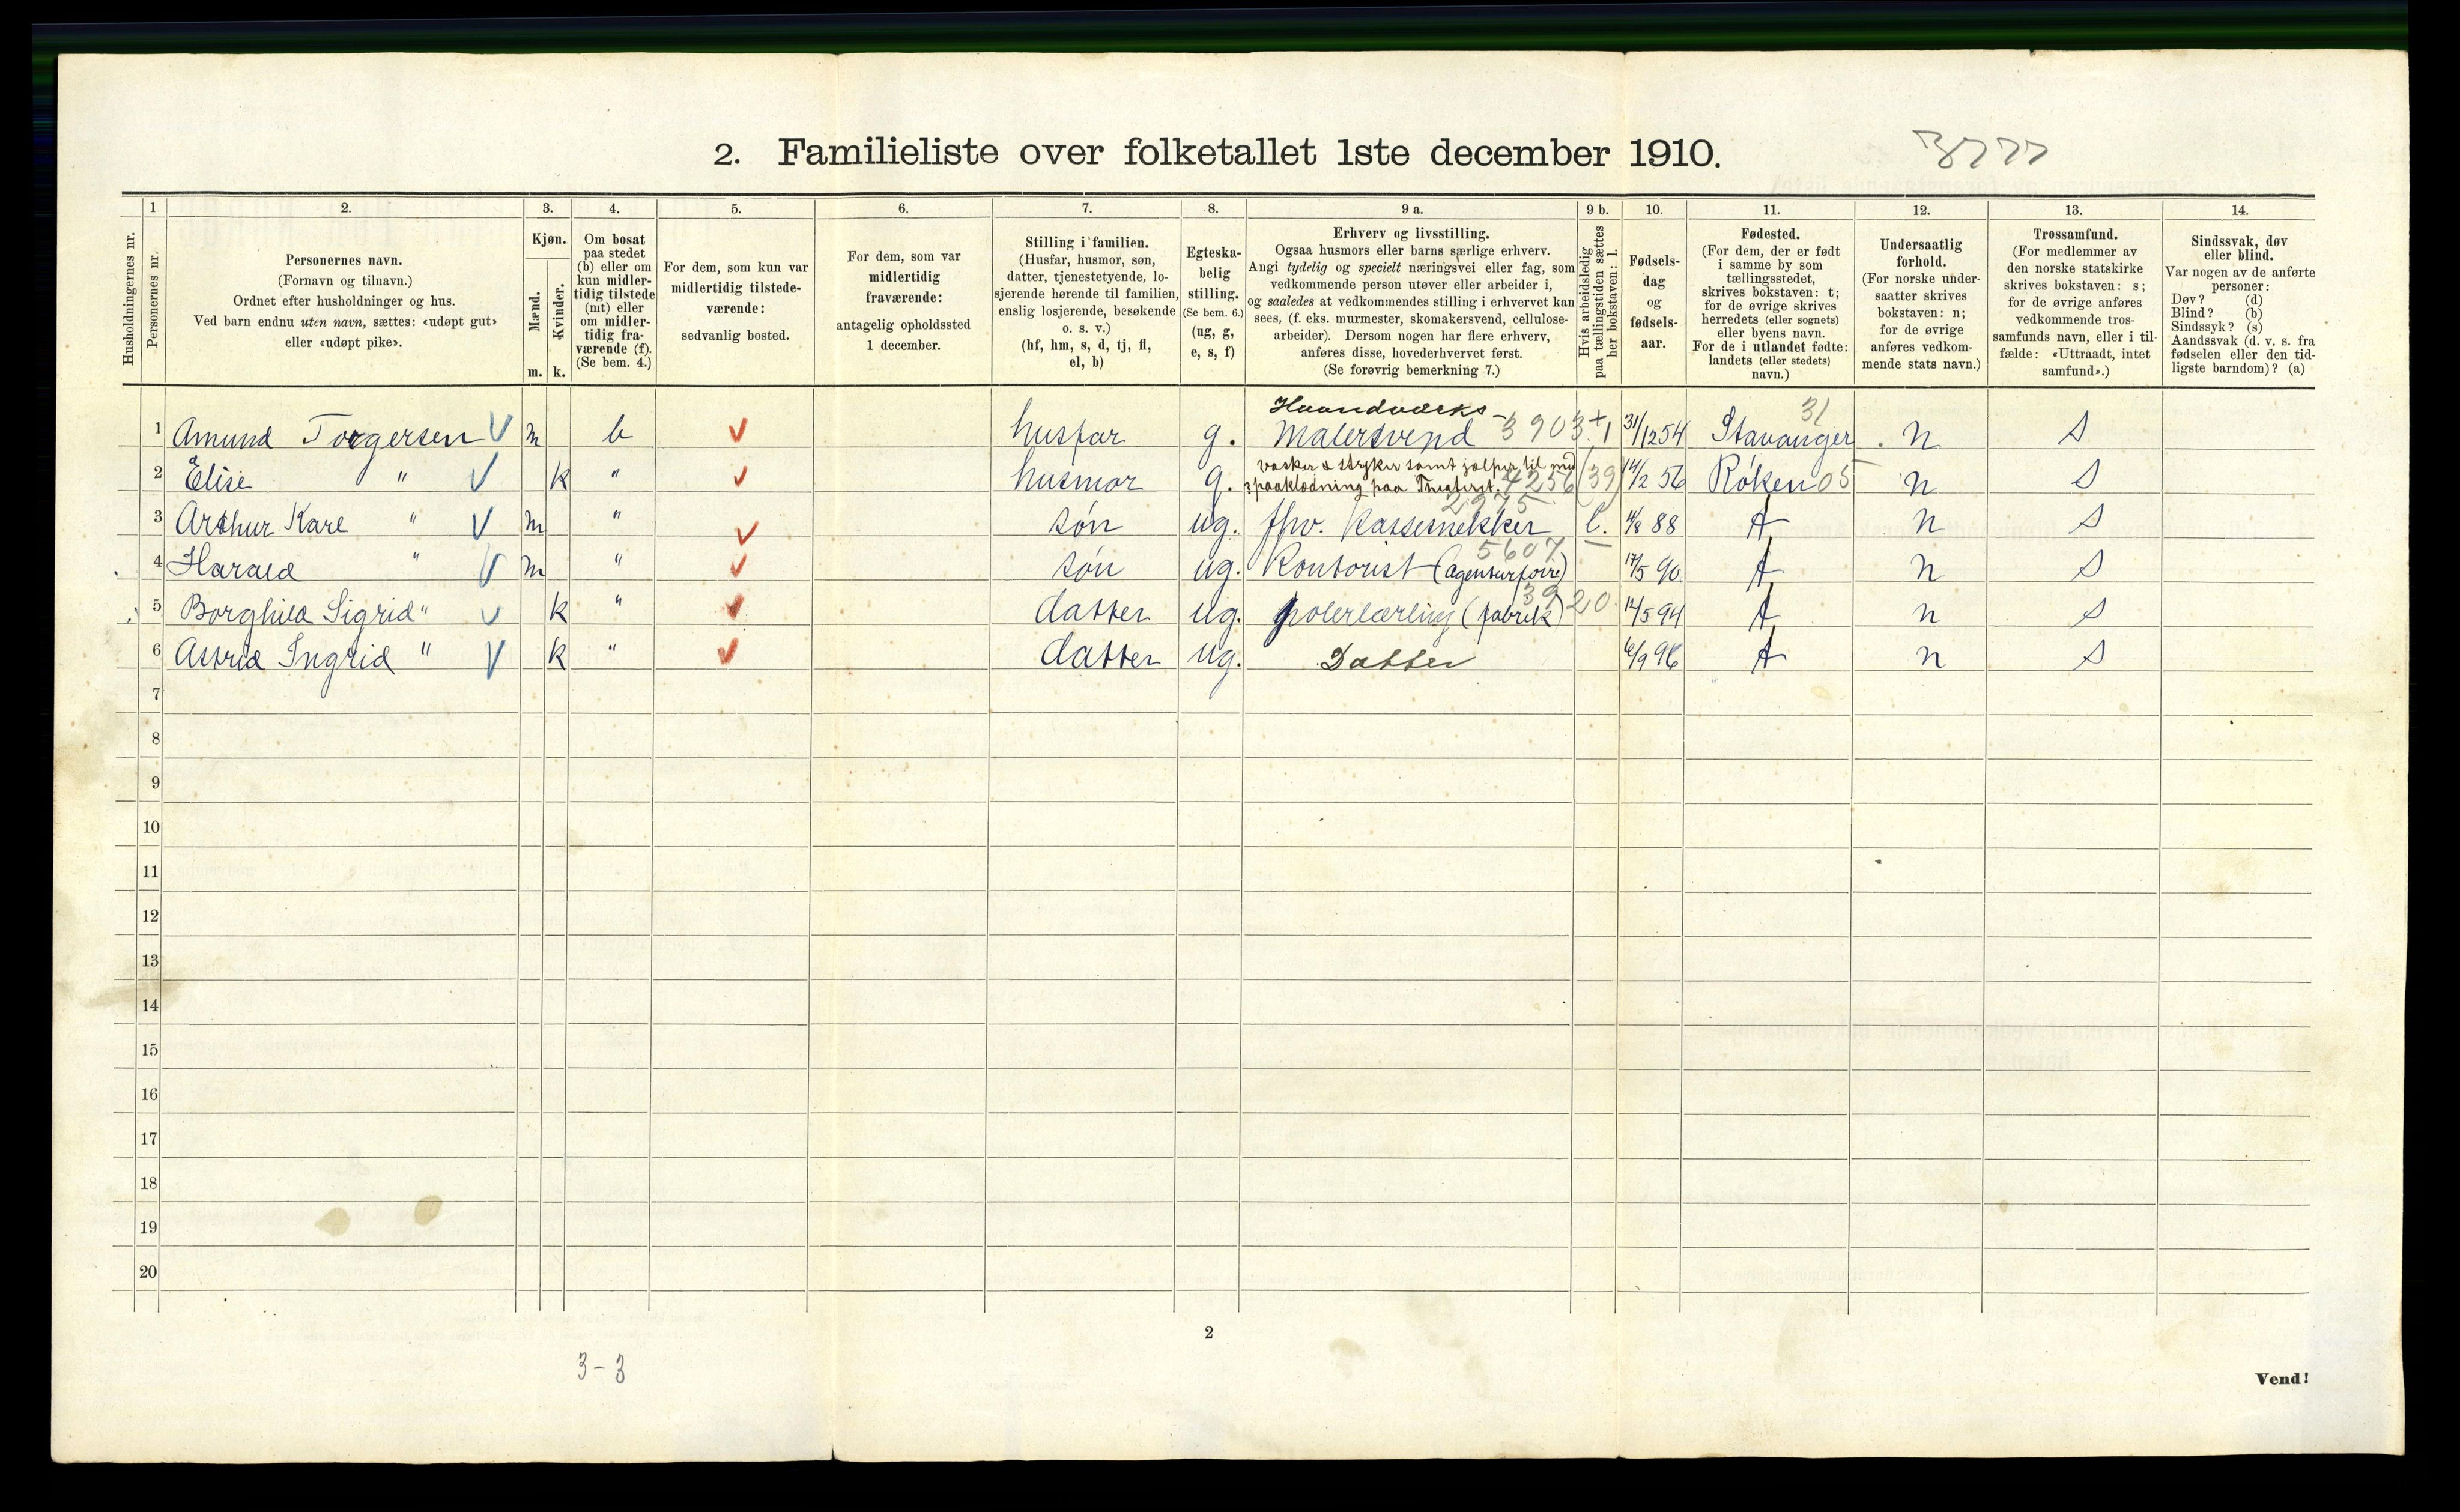 2. Familieliste over folketallet 1ste december 1910.
1 2. 3. 4. 5. 6. 7. 8. 9 a. 9 b. 10. 11. 12. 13. 14.
Husholdningernes nr.
Personernes nr.
Personernes navn.
(Fornavn og tilnavn.)
Ordnet efter husholdninger og hus.
Ved barn endnu uten navn, sættes: «udøpt gut»
eller «udøpt pike».
Kjøn.
Mænd.
Kvinder.
m. k.
Om bosat
paa stedet
(b) eller om
kun midler-
tidig tilstede
(mt) eller
om midler-
tidig fra-
værende (f).
(Se bem. 4.)
For dem, som kun var
midlertidig tilstede-
værende:
sedvanlig bosted.
For dem, som var
midlertidig
fraværende:
antagelig opholdssted
1 december.
Stilling i familien.
(Husfar, husmor, søn,
datter, tjenestetyende, lo-
sjerende hørende til familien,
enslig losjerende, besøkende
o. s. v.)
(hf, hm, s, d, tj, fl,
el, b)
Egteska-
belig
stilling.
(Se bem. 6.)
(ug, g,
e, s, f)
Erhverv og livsstilling.
Ogsaa husmors eller barns særlige erhverv.
Angi tydelig og specielt næringsvei eller fag, som
vedkommende person utøver eller arbeider i,
og saaledes at vedkommendes stilling i erhvervet kan
sees, (f. eks. murmester, skomakersvend, cellulose-
arbeider). Dersom nogen har flere erhverv,
anføres disse, hovederhvervet først.
(Se forøvrig bemerkning 7.)
Hvis arbeidsledig
paa tællingstiden sættes
her bokstaven: l.
Fødsels-
dag
og
fødsels-
aar.
Fødested.
(For dem, der er født
i samme by som
tællingsstedet,
skrives bokstaven: t;
for de øvrige skrives
herredets (eller sognets)
eller byens navn.
For de i utlandet fødte:
landets (eller stedets)
navn.)
Undersaatlig
forhold.
(For norske under-
saatter skrives
bokstaven: n;
for de øvrige
anføres vedkom-
mende stats navn.)
Trossamfund.
(For medlemmer av
den norske statskirke
skrives bokstaven: s;
for de øvrige anføres
vedkommende tros-
samfunds navn, eller i til-
fælde: «Uttraadt, intet
samfund».)
Sindssvak, døv
eller blind.
Var nogen av de anførte
personer:
Døv? (d)
Blind? (b)
Sindssyk? (s)
Aandssvak (d. v. s. fra
fødselen eller den tid-
ligste barndom)? (a)
Haandværks- 31
1 Amund Torgersen m b husfar g. malersvend 3903 + 1 31/12 54 Stavanger n s
vasker & stryker samt jælper til med
2 Elise " k " husmor g. paaklædning paa Theateret. 4256 (39) 14/2 56 Røken 05 n s
2975
3 Arthur Kare " m " søn ug. fhv. Kassesnekker l. 4/8 88 t n s
5607
4 Harald " m " søn ug. Kontorist (agenturforr.) 17/5 90 t n s
39 20
5 Borghild Sigrid " k " datter ug. polerlærling (fabrik) 14/5 94 t n s
6 Astrid Ingrid " k " datter ug. Datter 6/9 96 t n s
7
8
9
10
11
12
13
14
15
16
17
18
19
20
2
3-3
Vend!